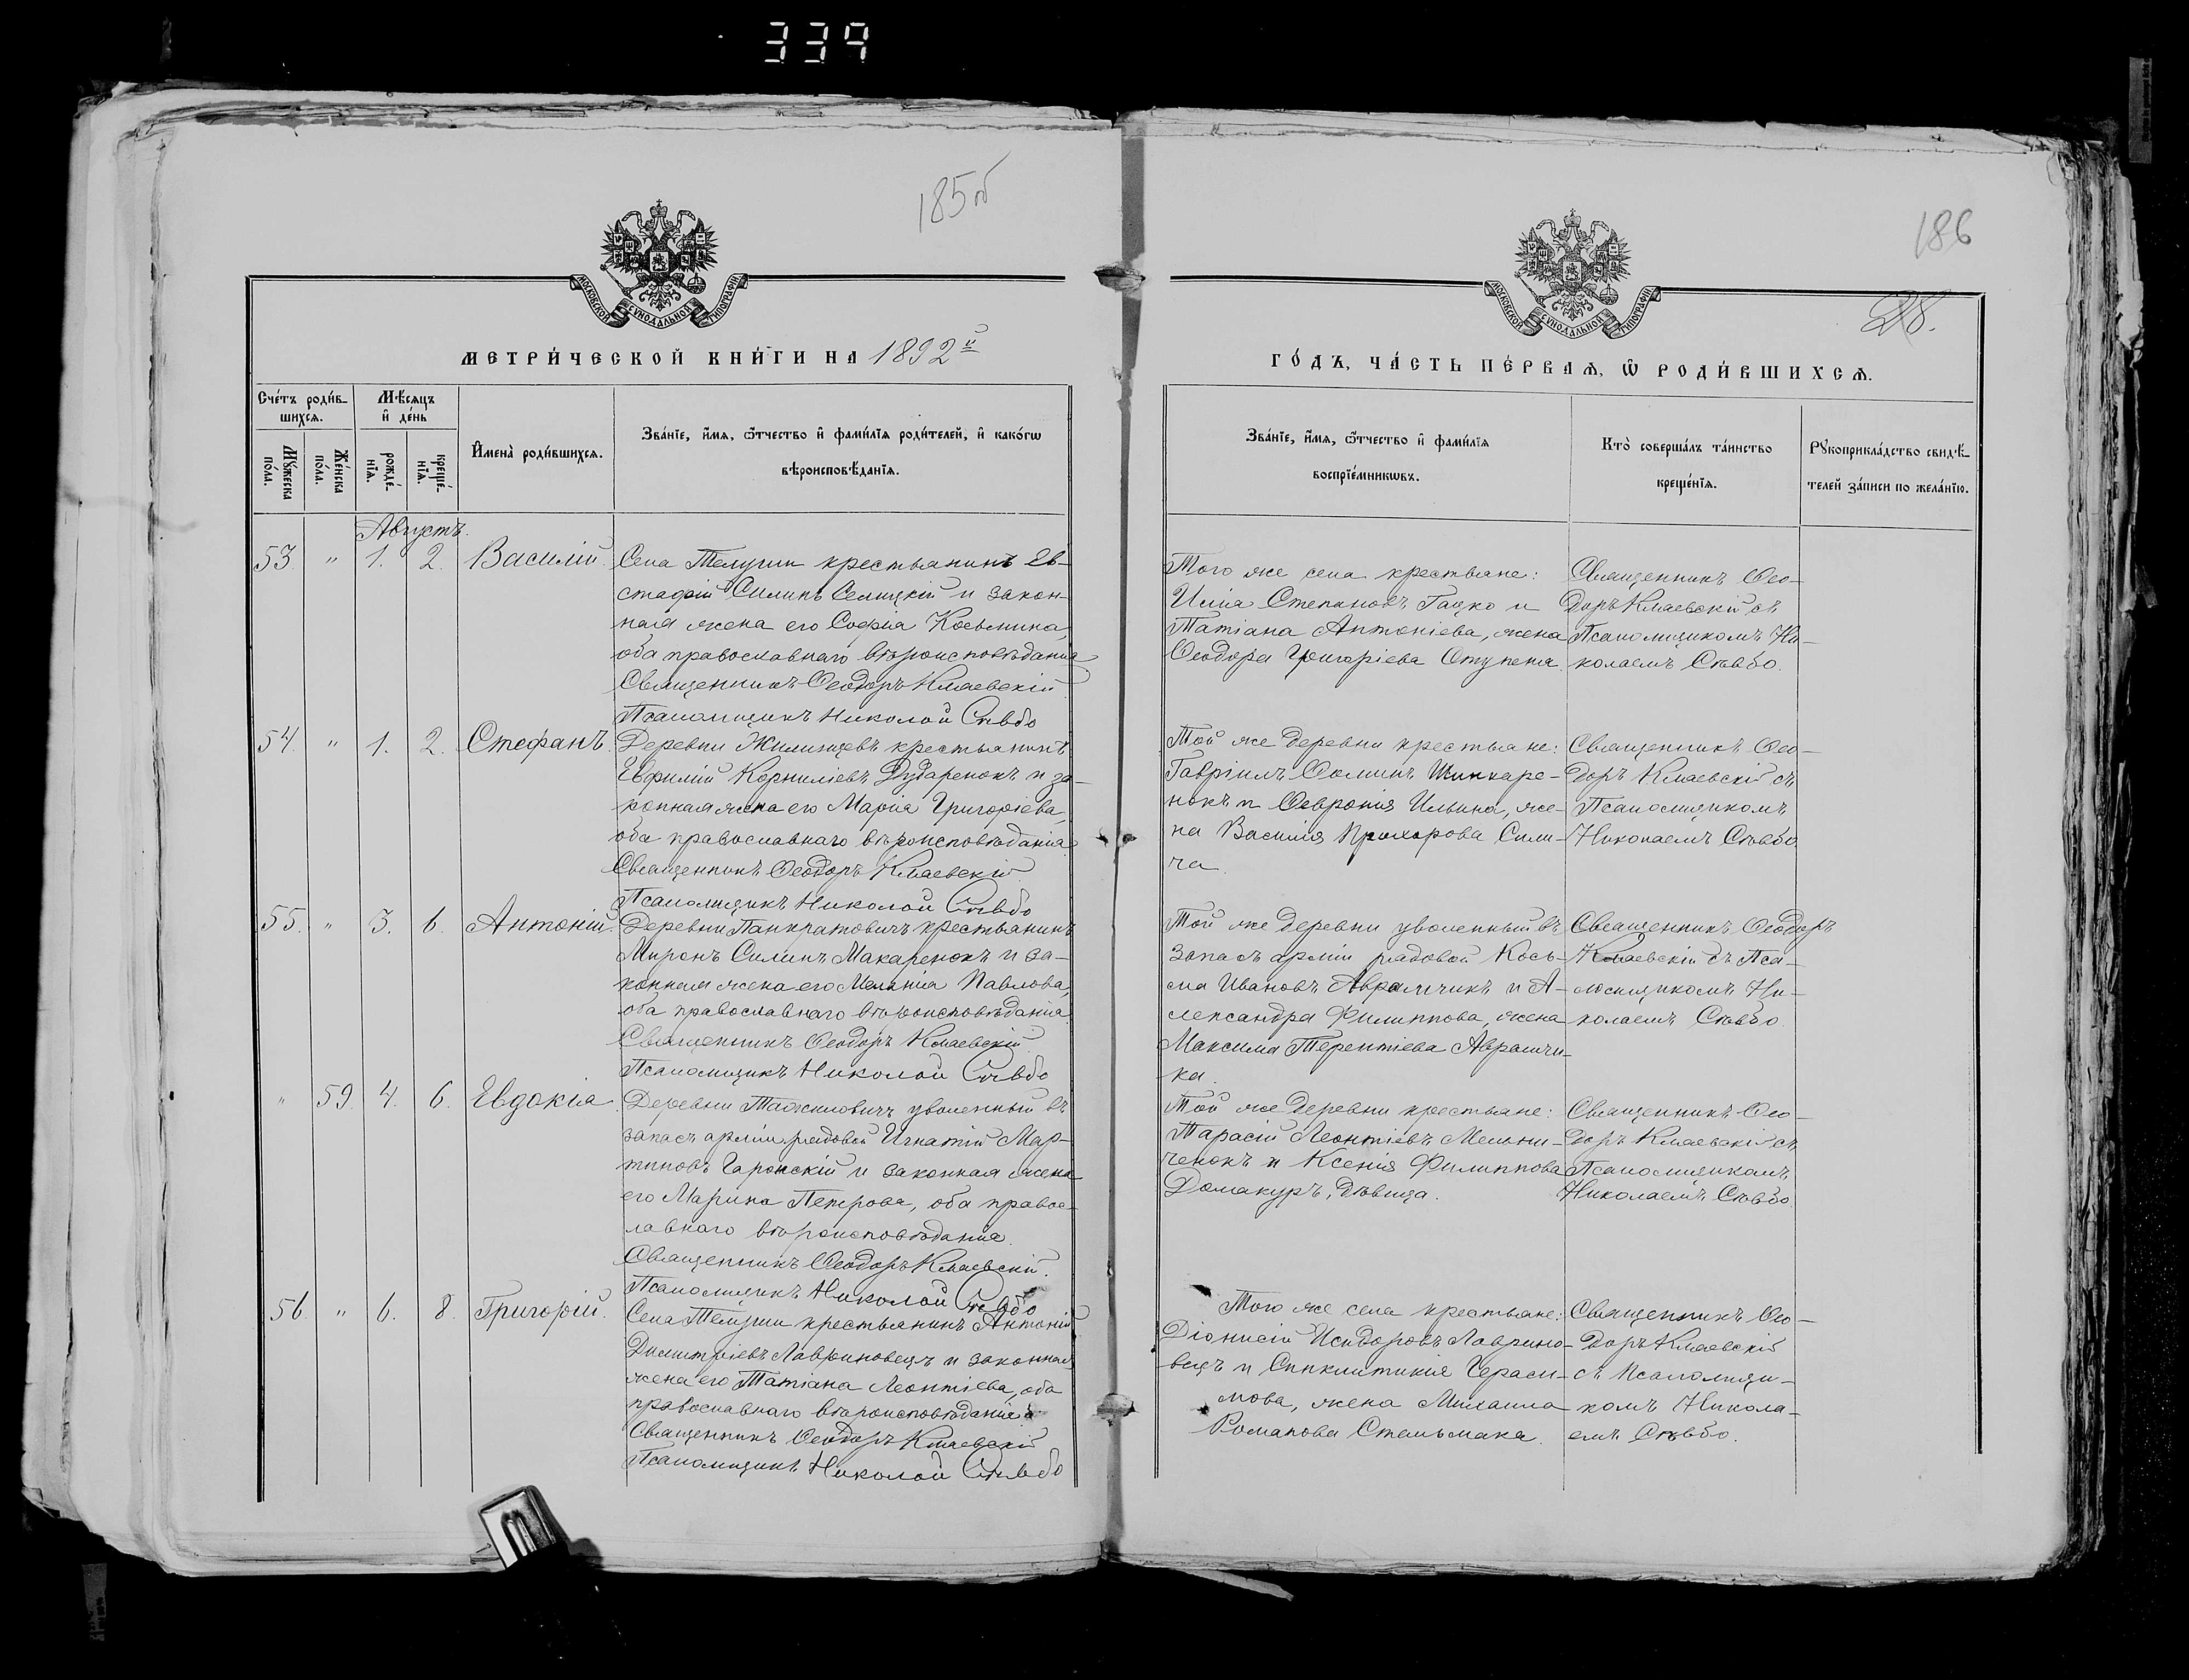 339
185об
186
28.
МОСКОВСКОЙ СУНОДАЛЬНОЙ ТИПОГРАФІИ
МОСКОВСКОЙ СУНОДАЛЬНОЙ ТИПОГРАФІИ
МЕТРИ́ЧЕСКОЙ КНИ́ГИ НА 1892й
ГО́ДЪ, ЧА́СТЬ ПЕ́РВАѦ, Ѽ РОДИ́ВШИХСѦ.
Сче́тъ роди́в-
шихсѧ.
Мѣ́сѧцъ
и҆ де́нь
Мꙋ́жеска
по́ла.
Же́нска
по́ла.
рожде́-
нїѧ.
креще́-
нїѧ.
И҆мена̀ роди́вшихсѧ.
Зва́нїе, и҆́мѧ, ѻ҆́тчество и҆ фами́лїѧ роди́телей, и҆ како́гѡ
вѣроисповѣ́данїѧ.
Зва́нїе, и҆́мѧ, ѻ҆́тчество и҆ фами́лїѧ
воспрїе́мникѡвъ.
Кто̀ соверша́лъ та́инство
креще́нїѧ.
Рꙋкоприкла́дство свидѣ́-
телей за́писи по жела́нїю.
Августъ.
53. " 1. 2. Василій.
Села Телуши крестьянинъ Ев-
стафій Силинъ Селицкій и закон-
ная жена его Софія Косьмина,
оба православнаго вѣроисповѣданія
Священникъ Ѳеодоръ Кмаевскій
Псаломщикъ Николай Сѣвбо
Того же села крестьяне:
Илія Степановъ Гацко и
Татіана Антоніева, жена
Ѳеодора Григоріева Ступена
Священникъ Ѳео-
доръ Кмаевскій съ
Псаломщикомъ Ни-
колаемъ Сѣвбо.
54. " 1. 2. Стефанъ.
Деревни Жилинцевъ крестьянинъ
Евфимій Корниліевъ Дударенокъ и за-
конная жена его Марія Григоріева,
оба православнаго вѣроисповѣданія
Священникъ Ѳеодоръ Кмаевскій
Псаломщикъ Николай Сѣвбо
Той же деревни крестьяне:
Гавріилъ Ѳоминъ Шинкаре-
нокъ и Ѳевронія Ильина, же-
на Василія Прохорова Сили-
ча.
Священникъ Ѳео-
доръ Кмаевскій съ
Псаломщикомъ
Николаемъ Сѣвбо.
55. " 3. 6. Антоній.
Деревни Панкратовичъ крестьянинъ
Миронъ Силинъ Макаренокъ и за-
конная жена его Меланія Павлова,
оба православнаго вѣроисповѣданія
Священникъ Ѳеодоръ Кмаевскій
Псаломщикъ Николай Сѣвбо
Той же деревни уволенный въ
запасъ арміи рядовой Кось-
ма Ивановъ Аврамчикъ и А-
лександра Филиппова, жена
Максима Терентіева Аврамчи-
ка.
Священникъ Ѳеодоръ
Кмаевскій съ Пса-
ломщикомъ Ни-
колаемъ Сѣвбо.
" 59. 4. 6. Евдокія.
Деревни уволенный въ
запасъ арміи рядовой Игнатій Мар-
тиновъ и законная жена
его Марина Петрова, оба правос-
лавнаго вѣроисповѣданія.
Священникъ Ѳеодоръ Кмаевскій.
Псаломщикъ Николай Сѣвбо
Той же деревни крестьяне:
Тарасій Леонтіевъ Мельни-
ченокъ и Ксенія Филиппова
Домакуръ, дѣвица.
Священникъ Ѳео-
доръ Кмаевскій съ
Псаломщикомъ
Николаемъ Сѣвбо
56. " 6. 8. Григорій.
Села Телуши крестьянинъ Антоній
Димитріевъ Лавриновецъ и законная
жена его Татіана Леонтіева, оба
православнаго вѣроисповѣданія
Священникъ Ѳеодоръ Кмаевскій
Псаломщикъ Николай Сѣвбо
Того же села крестьяне:
Діонисій Исидоровъ Лаврино-
вецъ и Синклитикія Гераси-
мова, жена Михаила
Романова Стельмака.
Священникъ Ѳео-
доръ Кмаевскій
съ Псаломщи-
комъ Никола-
емъ Сѣвбо.